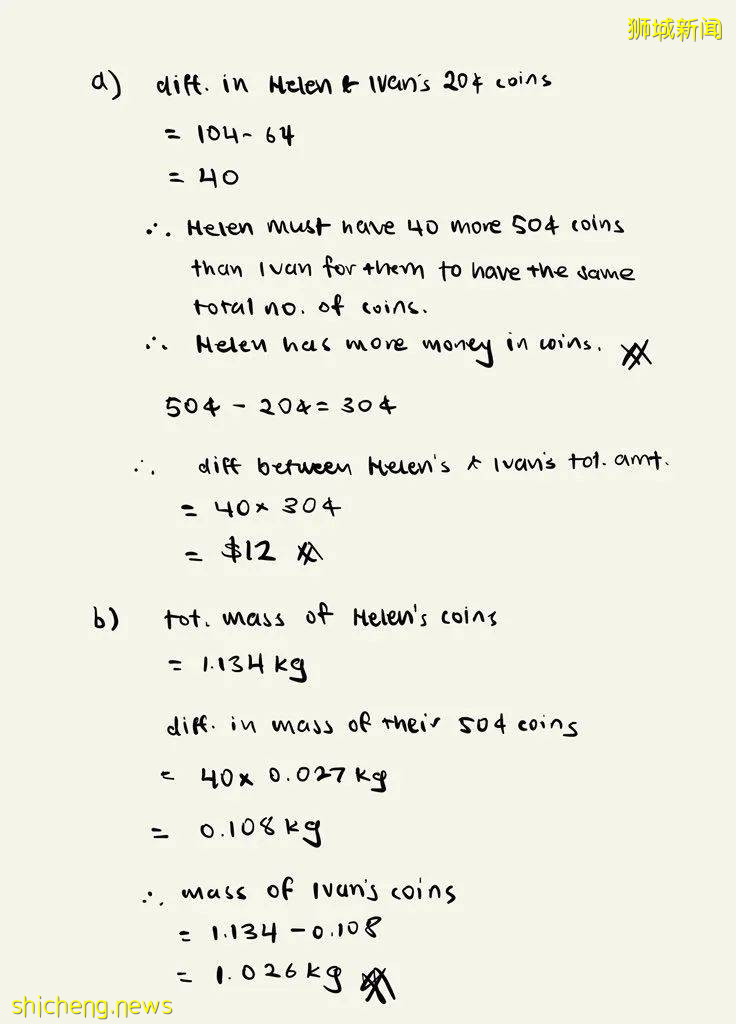 狮城新闻
a) diff. in Helen & Ivan's 20¢ coins
= 104 - 64
= 40
∴ Helen must have 40 more 50¢ coins
than Ivan for them to have the same
total no. of coins.
∴ Helen has more money in coins.
50¢ - 20¢ = 30¢
∴ diff between Helen's & Ivan's tot. amt.
= 40 × 30¢
= $12
b) tot. mass of Helen's coins
= 1.134 kg
diff. in mass of their 50¢ coins
= 40 × 0.027 kg
= 0.108 kg
∴ mass of Ivan's coins
= 1.134 - 0.108
= 1.026 kg
shicheng.news